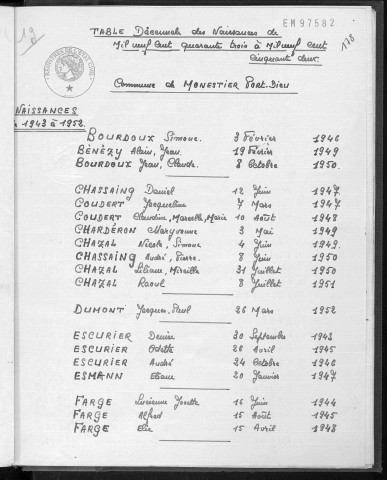 EM97582
19
178
TABLE Décennale des Naissances de
Mil neuf cent quarante trois à Mil neuf cent
cinquante deux.
Commune de MONESTIER Port-Dieu
NAISSANCES
1943 à 1952.
BOURDOUX Simone. 3 Février 1946
BÉNÉZY Alain, Jean. 19 Février 1949
BOURDOUX Jean, Claude. 8 Octobre 1950.
CHASSAING Daniel 12 Juin 1947.
COUDERT Jacqueline 7 Mars 1947
COUDERT Claudine, Marcelle, Marie 10 Août 1948
CHARDÉRON Maryvonne 3 Mai 1949
CHAZAL Nicole, Simone 4 Juin 1949.
CHASSAING André, Pierre. 8 Juin 1950
CHAZAL Liliane, Mireille 31 Juillet 1950
CHAZAL Raoul 8 Juillet 1951
DUMONT Jacques, Paul 26 Mars 1952
ESCURIER Denise 30 Septembre 1943
ESCURIER Odette 26 Avril 1945
ESCURIER André 24 Octobre 1946
ESMANN 20 Janvier 1947
FARGE Lucienne Josette 16 Juin 1944
FARGE Alfred 15 Août 1945
FARGE Elie 15 Avril 1948